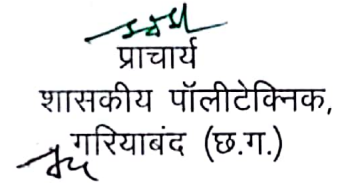 प्राचार्य
शासकीय पॉलीटेक्निक,
गरियाबंद (छ.ग.)